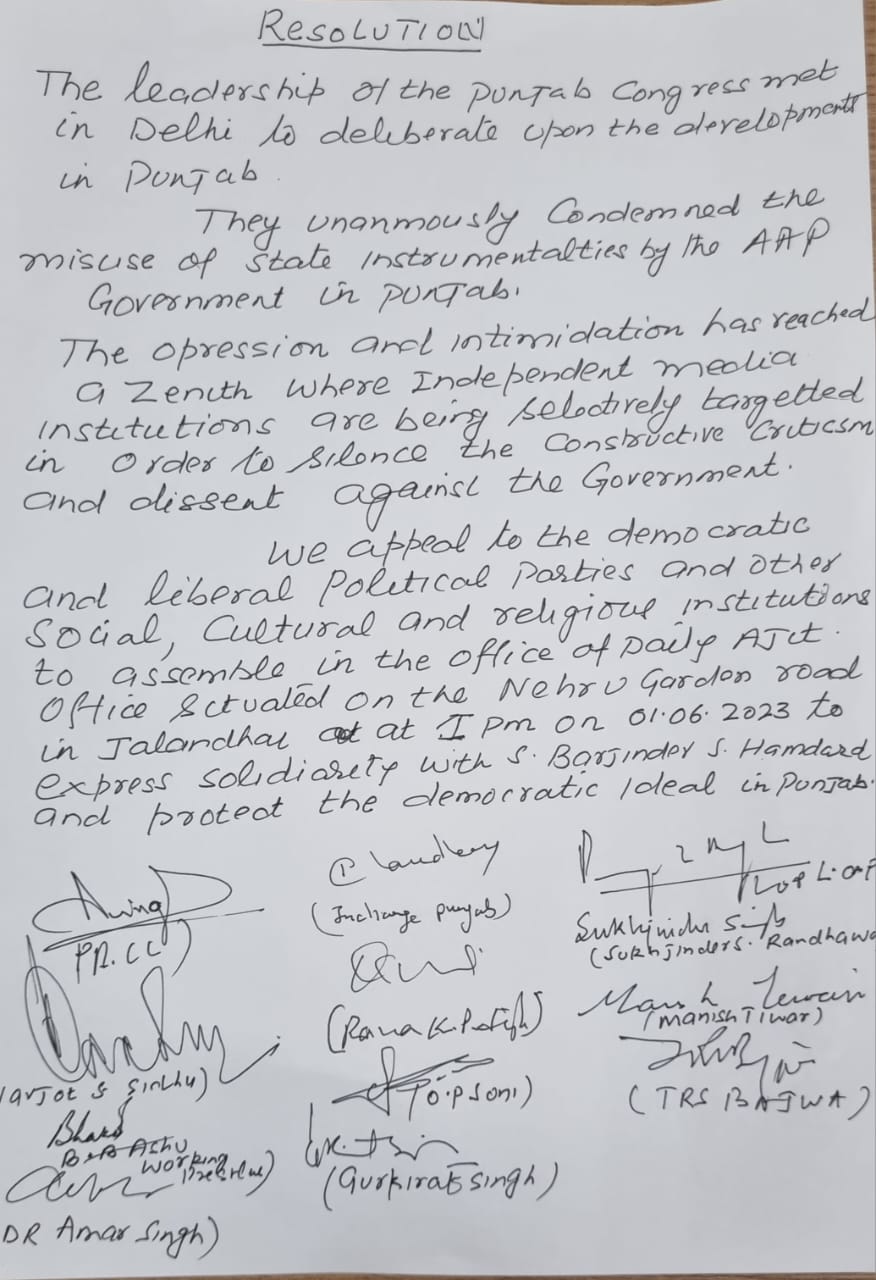 RESOLUTION
The leadership of the Punjab Congress met
in Delhi to deliberate upon the developments
in Punjab.
They unanmously Condemned the
misuse of State Instrumentalties by the AAP
Government in Punjab.
The opression and intimidation has reached
a Zenith where Independent media
institutions are being selectively targetted
in order to silence the Constructive Criticsm
and dissent against the Government.
We appeal to the democratic
and liberal Political Parties and other
Social, Cultural and religious institutions
to assemble in the office of Daily AJit.
Office Situated on the Nehru Garden road
in Jalandhar at 1 pm on 01.06.2023 to
express solidiarety with S. Barjinder S. Hamdard
and protect the democratic Ideal in Punjab.
Chaudhary
(Incharge punjab)
LOP
Sukhjinder Singh
(Sukhjinder S. Randhawa
(Rana K.P. Singh)
Manish Tewari
(Manish Tiwari)
S Sidhu)
(O.P Soni)
(TRS BAJWA)
B.B Ashu
Working President)
(Gurkirat Singh)
DR Amar Singh)